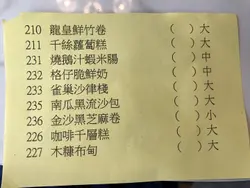 210 龍皇鮮竹卷 ( ) 大
211 千絲蘿蔔糕 ( ) 大
231 燒鵝汁蝦米腸 ( ) 中
232 格仔脆鮮奶 ( ) 中
233 雀巢沙律棧 ( ) 大
235 南瓜黑流沙包 ( ) 大
236 金沙黑芝麻卷 ( ) 小
226 咖啡千層糕 ( ) 大
227 木糠布甸 ( ) 大